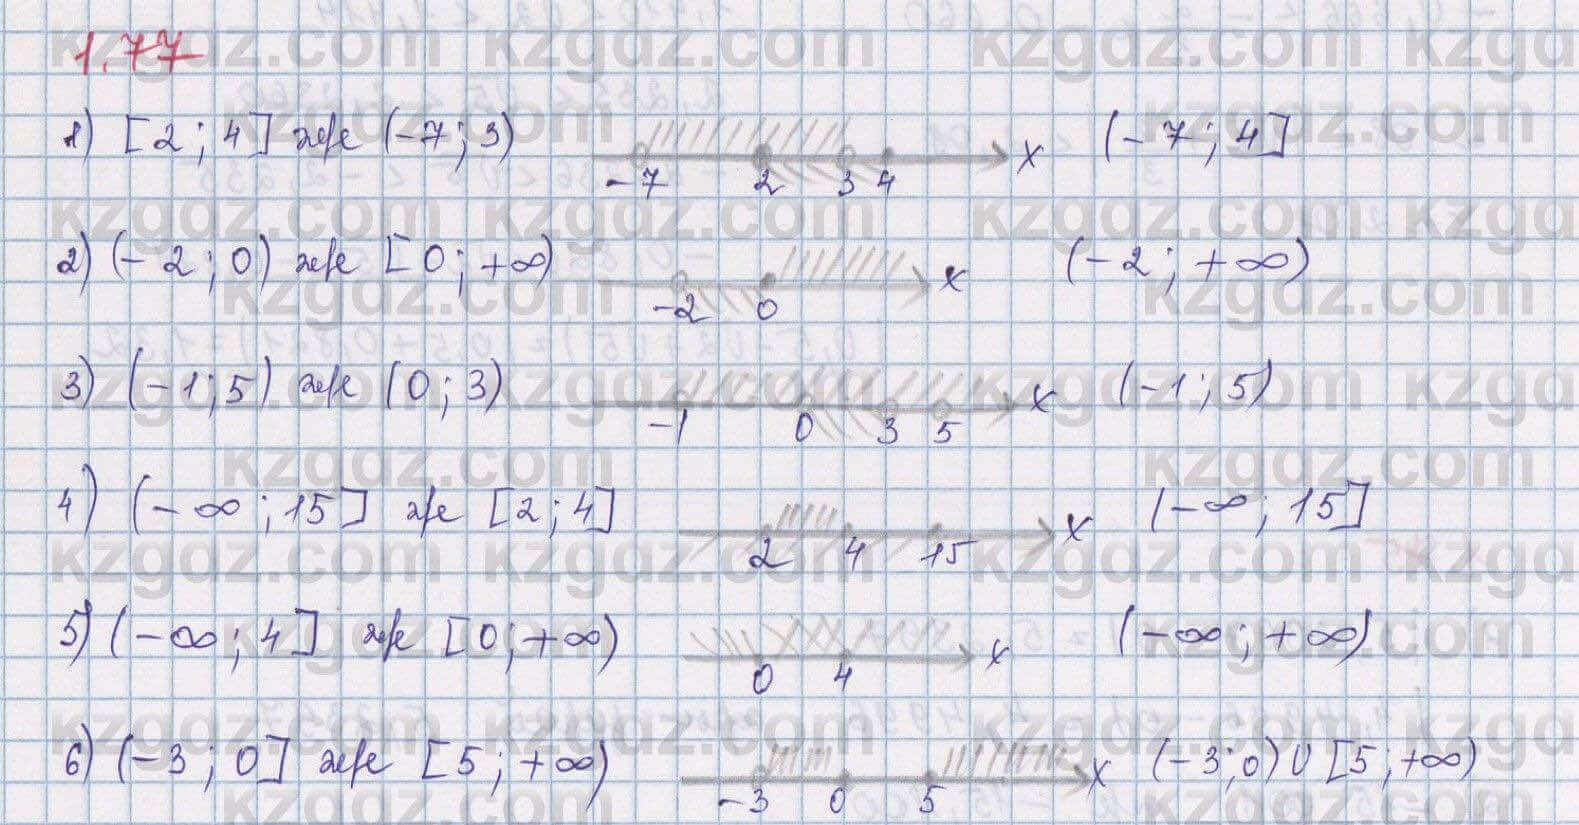 1.77
1) [2; 4] және (-7; 3) -7 2 3 4 x (-7; 4]
2) (-2; 0) және [0; +∞) -2 0 x (-2; +∞)
3) (-1; 5) және (0; 3) -1 0 3 5 x (-1; 5)
4) (-∞; 15] және [2; 4] 2 4 15 x (-∞; 15]
5) (-∞; 4] және [0; +∞) 0 4 x (-∞; +∞)
6) (-3; 0] және [5; +∞) -3 0 5 x (-3; 0) U [5; +∞)
kzgdz.com